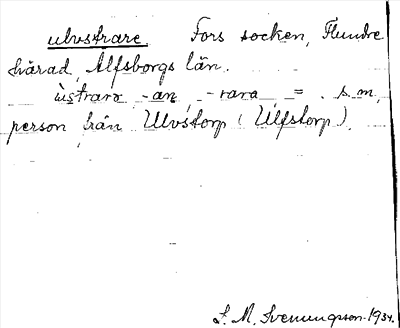 ulvstrare. Fors socken, Flundre
härad, Älfsborgs län.
ùstrarə -an, -rara = s. m.
person från Ulvstorp (Ulfstorp).
S. M. Svenungsson. 1934.